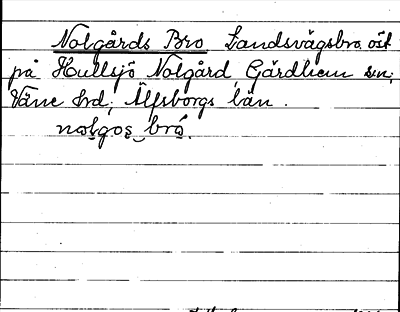 Nolgårds Bro Landsvägsbro öst
på Hullsjö Nolgård Gärdhem sn;
Väne hrd; Älfsborgs län.
nolgos bro.